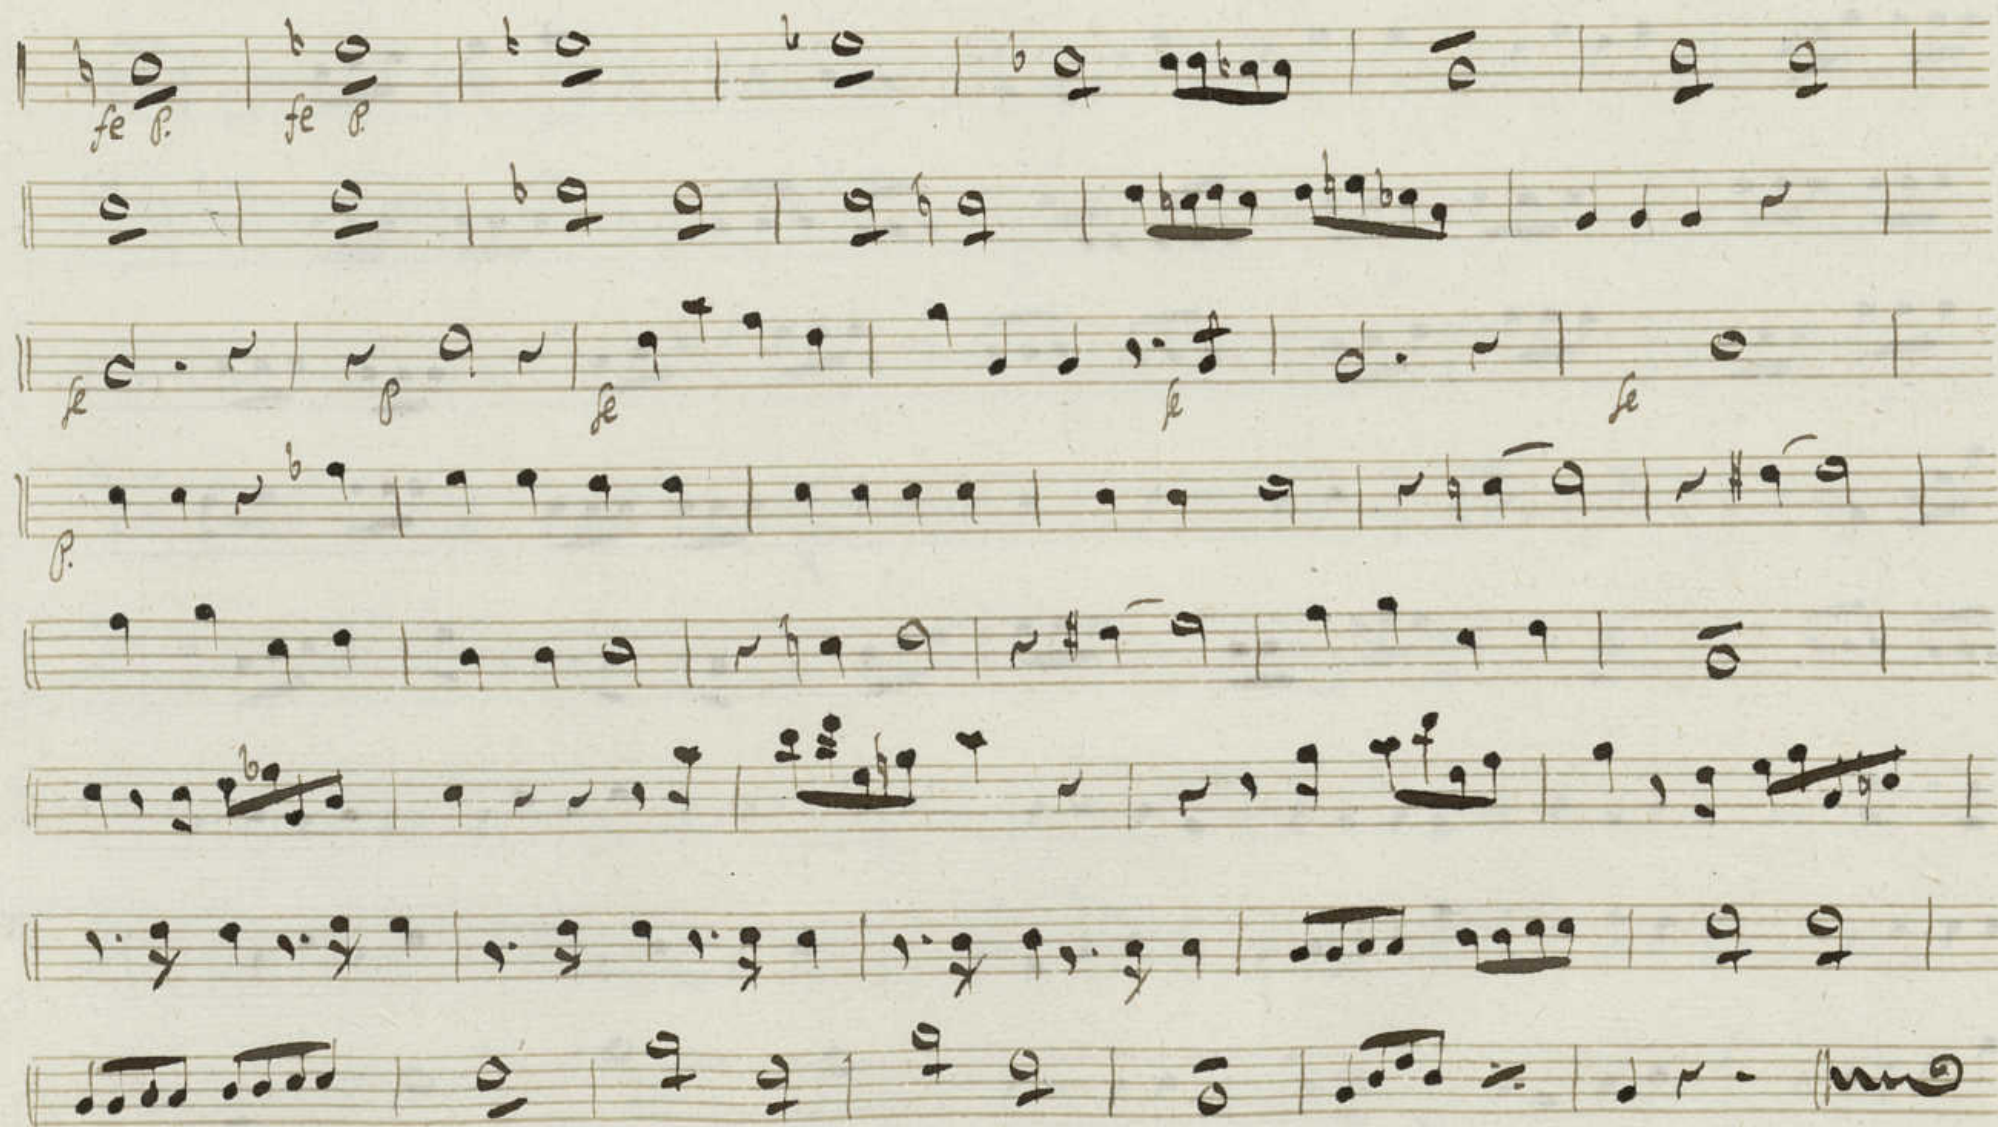 fe p. fe p.
fe p fe fe fe
p.